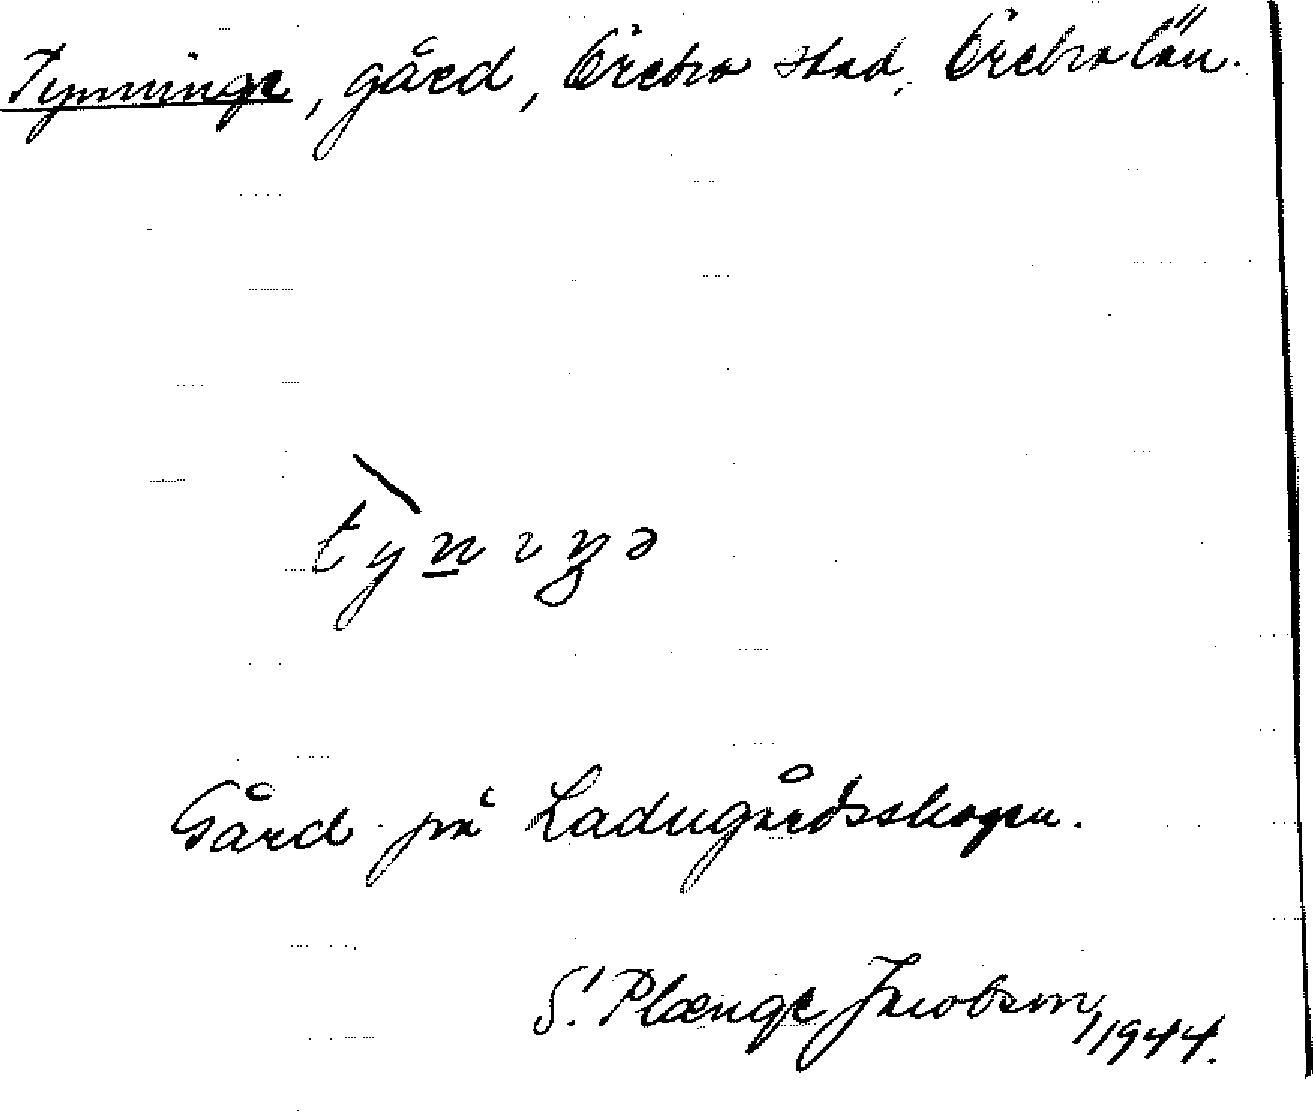 Tynninge, gård, Örebro stad, Örebro län.
tỳn̲ıŋə
Gård på Ladugårdsskogen.
S. Plænge Jacobson, 1944.